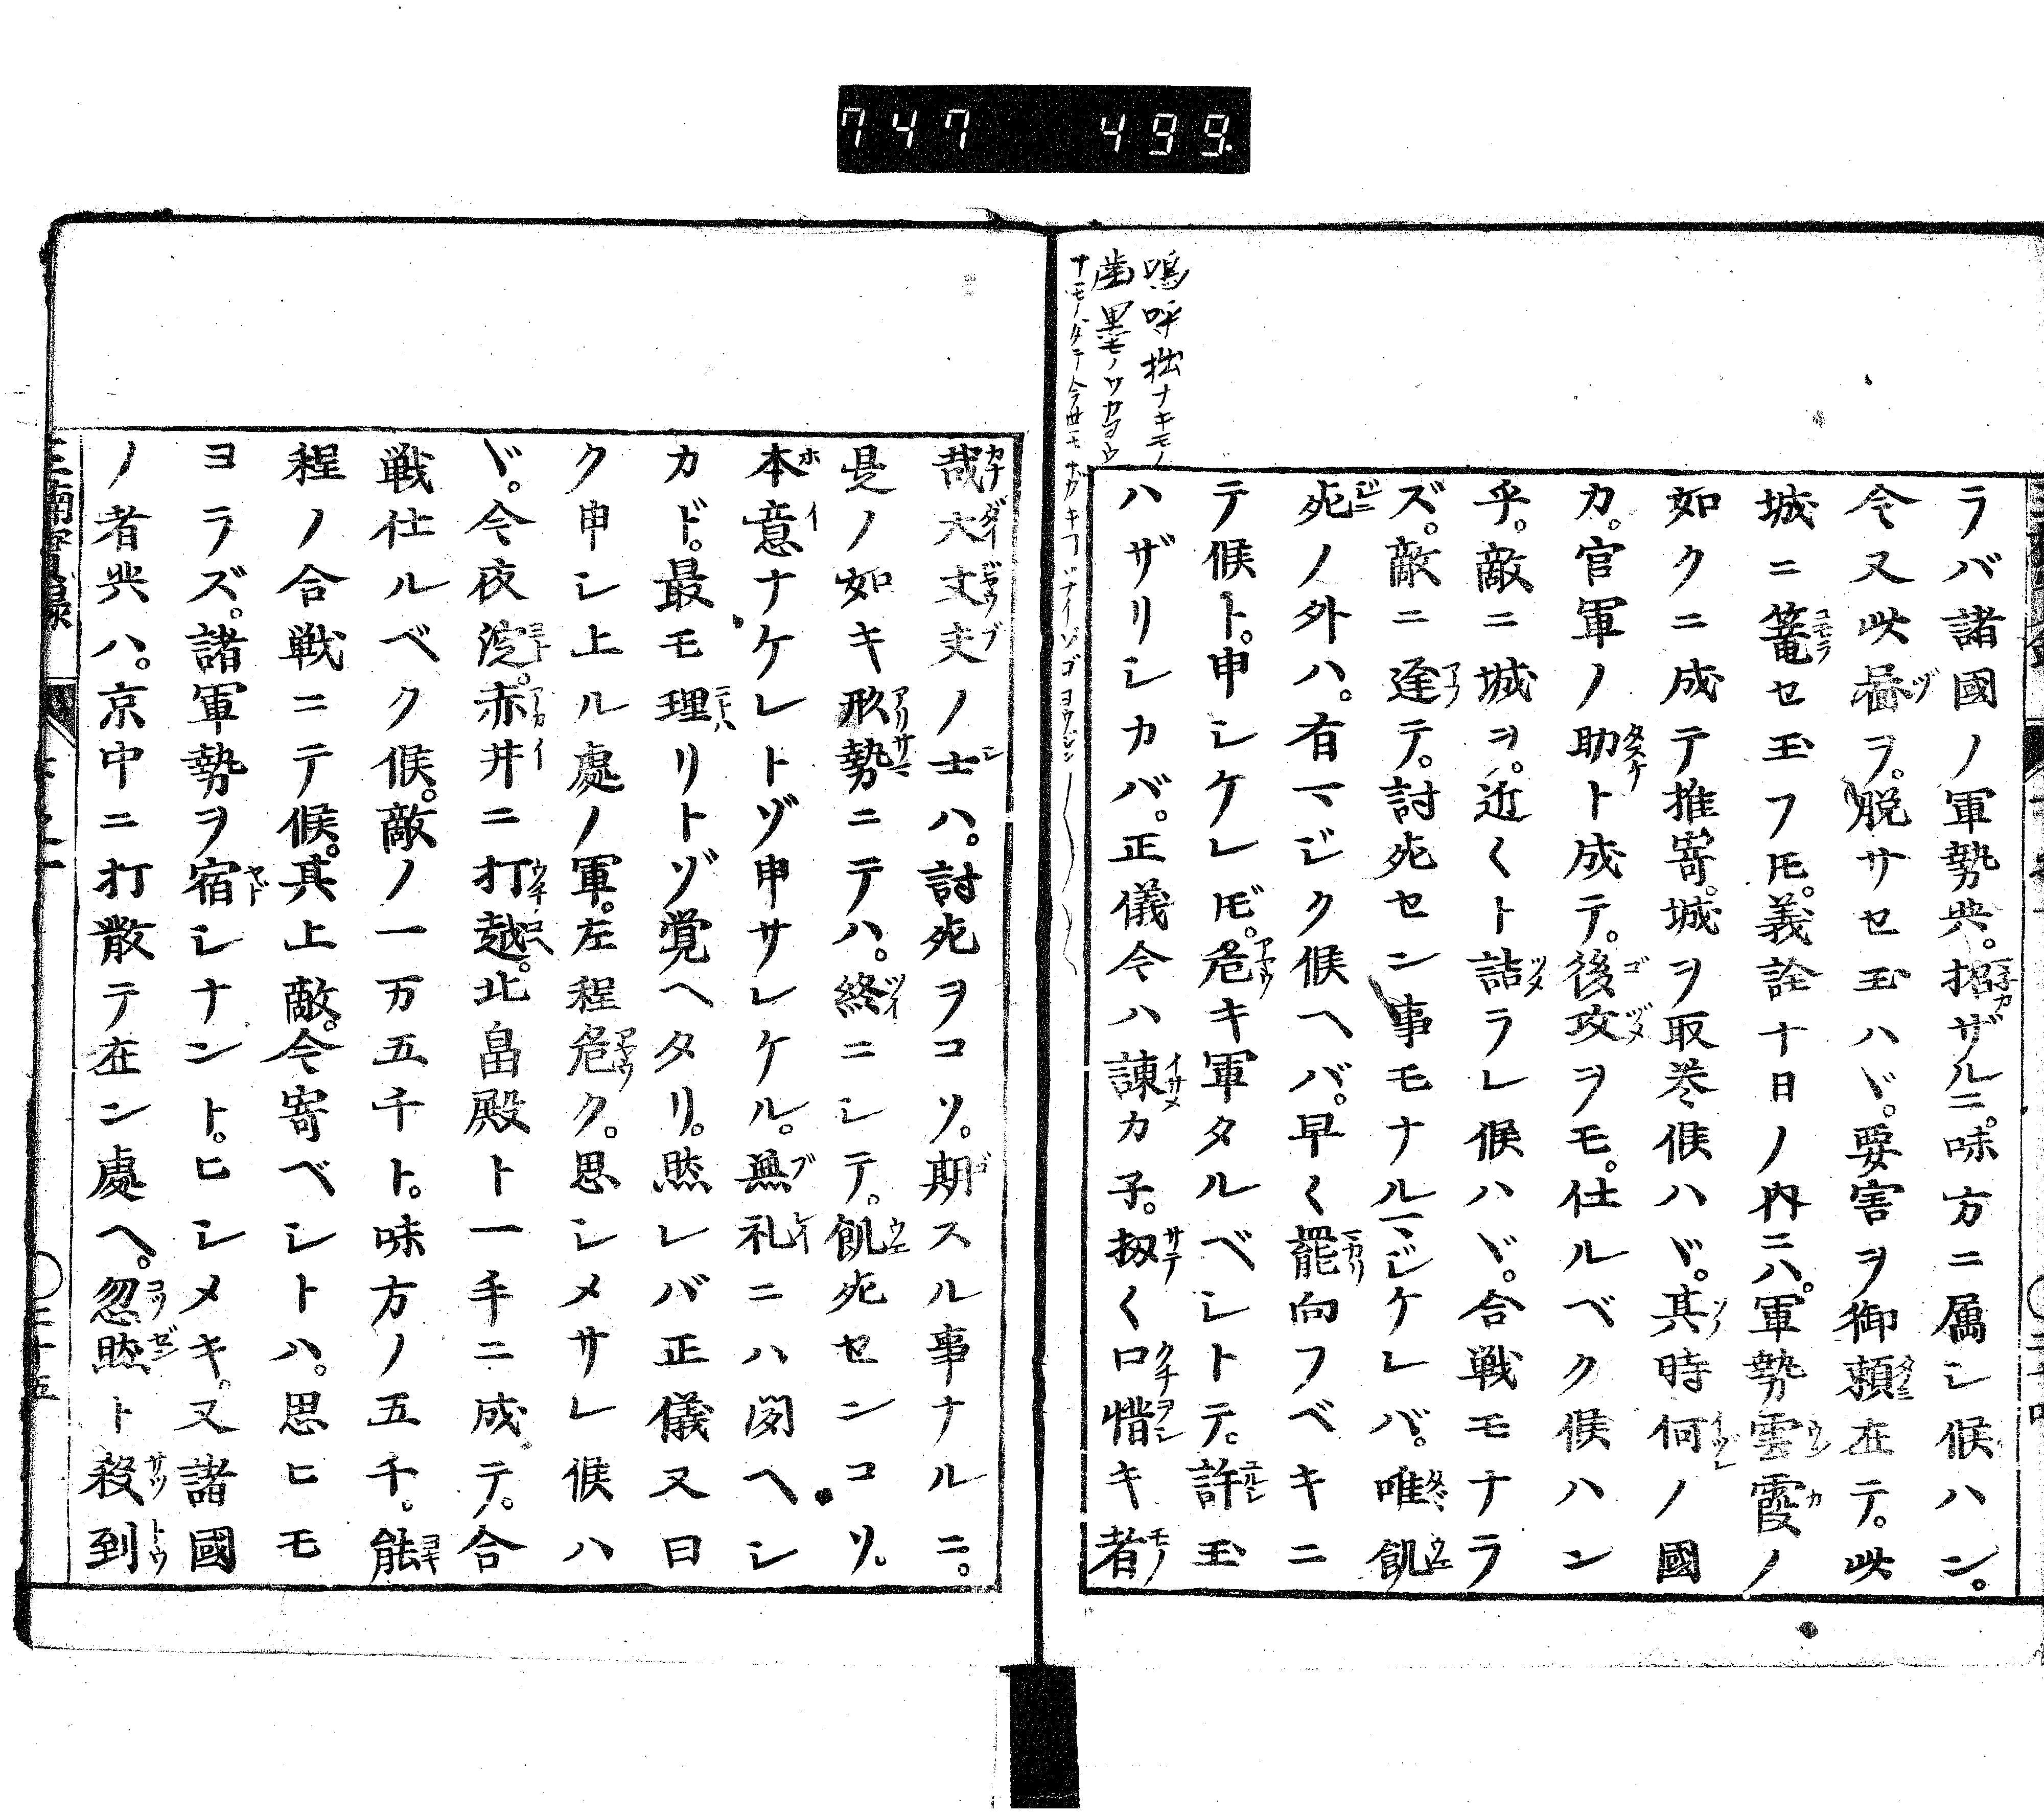 747 499.
嗚呼拙ナキモノ
歯墨モノワカヨウ
ラバ諸國ノ軍勢共。招ザルニ。味方ニ属シ候ハン。
今又此㽗ヲ。脱サセ玉ハヾ。要害ヲ御頼在テ。此
城ニ篭セ玉フ𪜈。義詮十日ノ内ニハ。軍勢雲霞ノ
如クニ成テ推寄。城ヲ取巻候ハヾ。其時何ノ國
カ。官軍ノ助ト成テ。後攻ヲモ。仕ルベク候ハン
乎。敵ニ城ヲ。近〱ト詰ラレ候ハヾ。合戦モナラ
ズ。敵ニ逢テ。討死セン事モナルマジケレバ。唯飢
死ノ外ハ。有マジク候ヘバ。早〱罷向フベキニ
テ候ト。申シケレ𪜈。危キ軍タルベシトテ。許玉
ハザリシカバ。正儀令ハ諌カ子。扨〱口惜キ者
哉大丈夫ノ士ハ。討死ヲコソ。期スル事ナルニ。
是ノ如キ形勢ニテハ。終ニシテ。飢死センコソ。
本意ナケレトゾ申サレケル。無礼ニハ聞ヘシ
カド。最モ理リトゾ覚ヘタリ。然レバ正儀又曰
ク申シ上ル處ノ軍。左程危ク。思シメサレ候ハ
ヾ。今夜淀。赤井ニ打越。北畠殿ト一手ニ成テ。合
戦仕ルベク候。敵ノ一万五千ト。味方ノ五千。能
程ノ合戦ニテ候。其上敵。今寄ベシトハ。思ヒモ
ヨラズ。諸軍勢ヲ宿シナント。ヒシメキ。又諸國
ノ者共ハ。京中ニ打散テ在ン處ヘ。忽然ト殺到